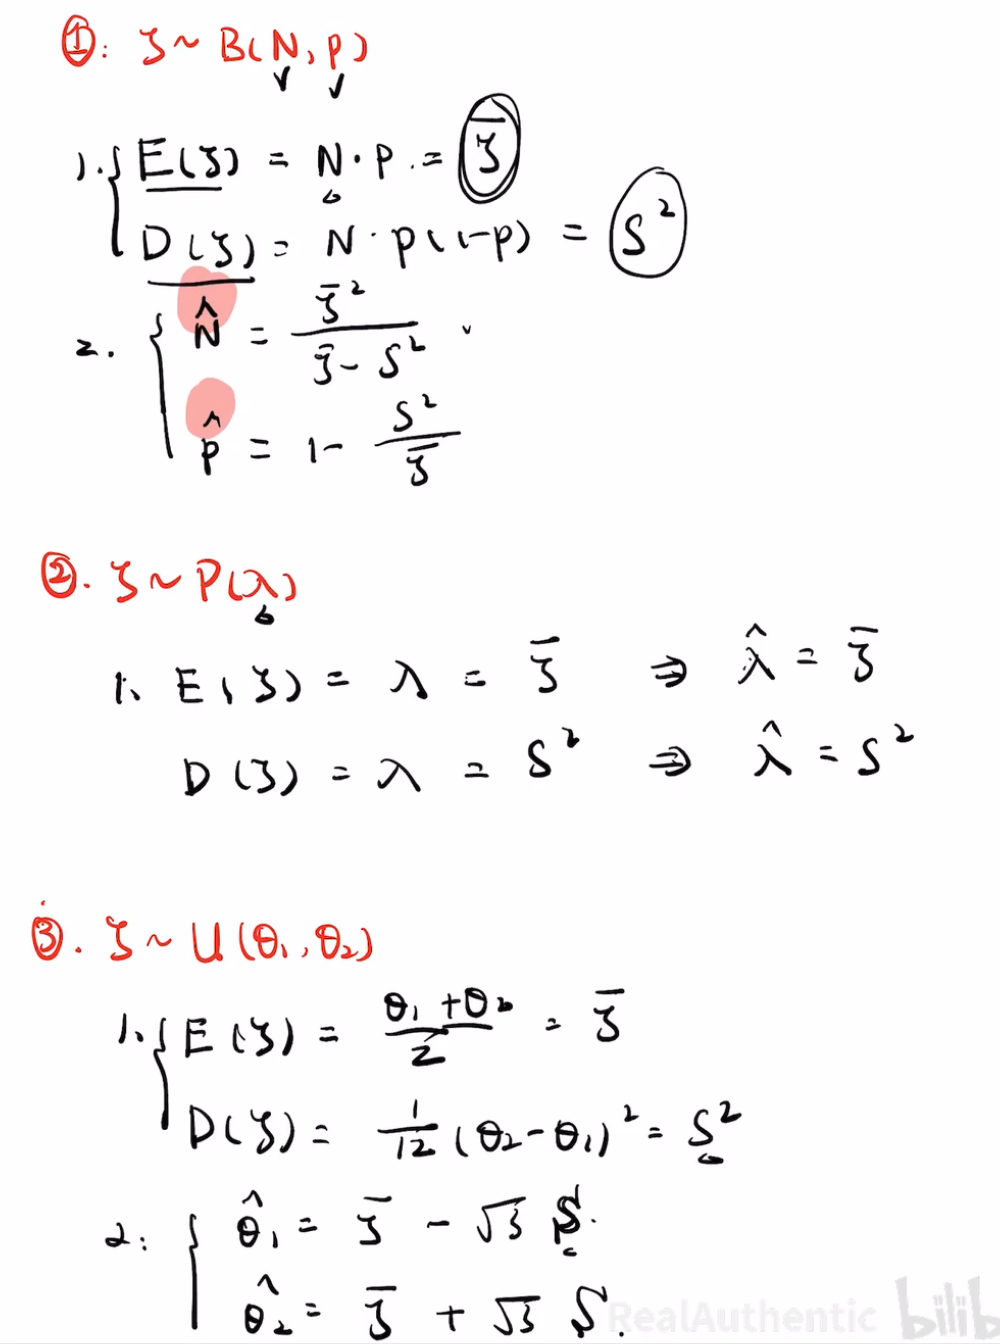 ①: ξ ~ B(N, p)
1. { E(ξ) = N · p = ξ̄
D(ξ) = N · p(1-p) = S²
2. { N̂ = ξ̄² / (ξ̄ - S²)
p̂ = 1 - S² / ξ̄
②. ξ ~ P(λ)
1. E(ξ) = λ = ξ̄ ⇒ λ̂ = ξ̄
D(ξ) = λ = S² ⇒ λ̂ = S²
③. ξ ~ U(θ₁, θ₂)
1. { E(ξ) = (θ₁ + θ₂) / 2 = ξ̄
D(ξ) = 1/12 (θ₂ - θ₁)² = S²
2: { θ̂₁ = ξ̄ - √3 S.
θ̂₂ = ξ̄ + √3 S.
RealAuthentic bilib